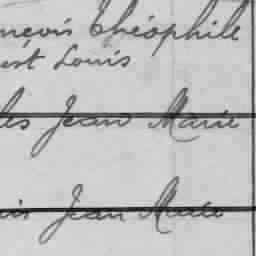 nçois Théophile
est Louis
les Jean Marie
is Jean Marie